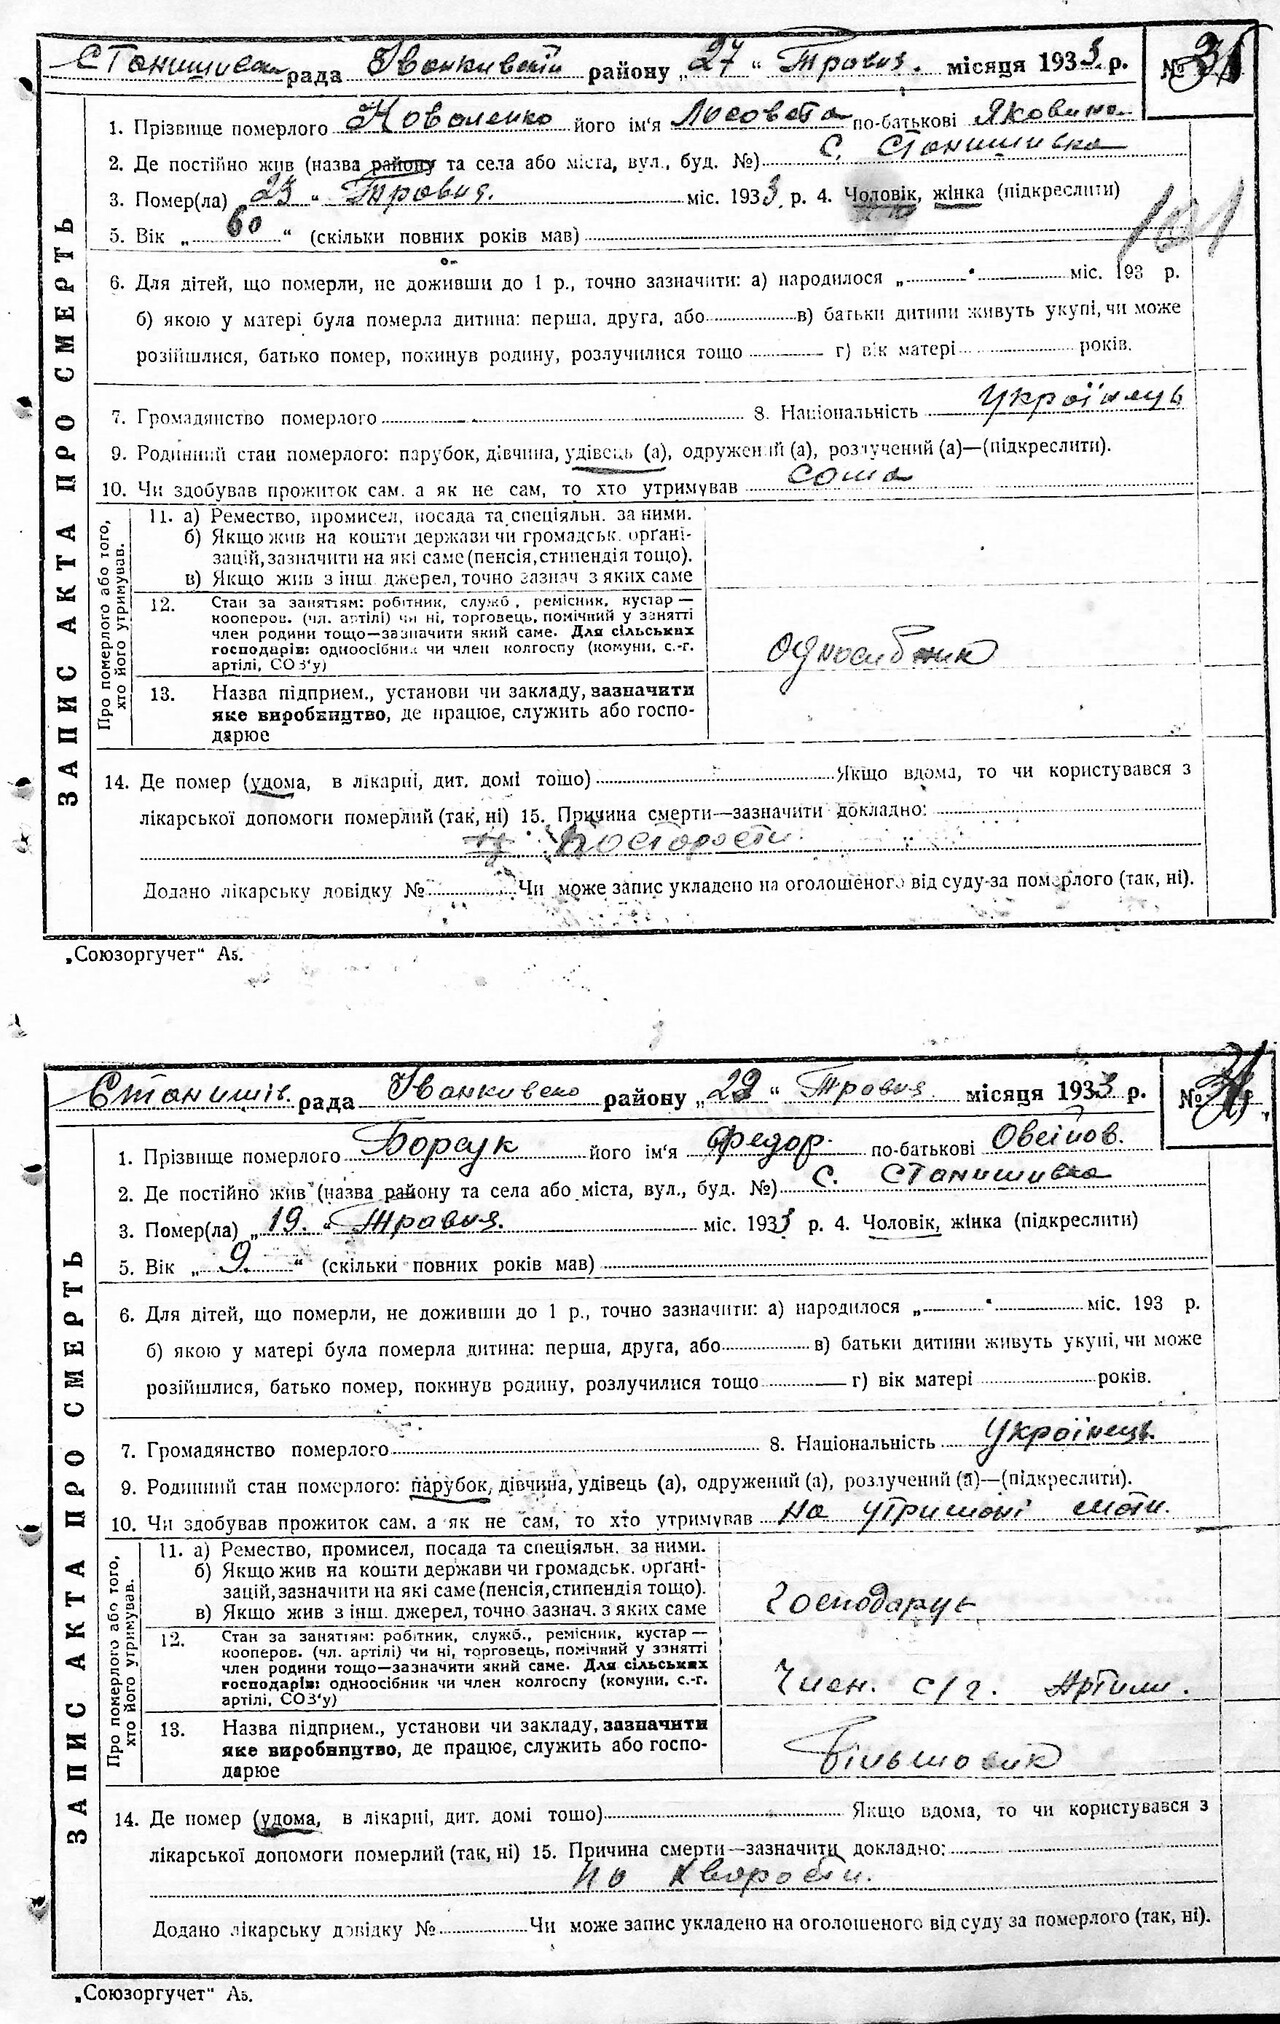 Станишівська рада Іванківський району „27“ Травня місяця 1933 р. №
1. Прізвище померлого Коваленко його ім'я Лисовета по-батькові Яковина
2. Де постійно жив (назва району та села або міста, вул., буд. №) С. Станишивка
3. Помер(ла) 23 „ Травня. міс. 1933 р. 4. Чоловік, жінка (підкреслити)
5. Вік „ 60 “ (скільки повних років мав)
6. Для дітей, що померли, не доживши до 1 р., точно зазначити: а) народилося „ “ міс. 193 р.
б) якою у матері була померла дитина: перша, друга, або в) батьки дитини живуть укупі, чи може
розійшлися, батько помер, покинув родину, розлучилися тощо г) вік матері років.
7. Громадянство померлого 8. Національність Українець
9. Родинний стан померлого: парубок, дівчина, удівець (а), одружений (а), розлучений (а)—(підкреслити).
10. Чи здобував прожиток сам, а як не сам, то хто утримував сома
ЗАПИС АКТА ПРО СМЕРТЬ
Про померлого або того, хто його утримував.
11. а) Ремество, промисел, посада та спеціяльн. за ними.
б) Якщо жив на кошти держави чи громадськ. орґані-
зацій, зазначити на які саме (пенсія, стипендія тощо).
в) Якщо жив з інш. джерел, точно зазнач. з яких саме
12. Стан за занятіям: робітник, служб., ремісник, кустар—
кооперов. (чл. артілі) чи ні, торговець, помічний у занятті
член родини тощо—зазначити який саме. Для сільських
господарів: одноосібник чи член колгоспу (комуни, с.-г.
артілі, СОЗ'у) Односибник
13. Назва підприєм., установи чи закладу, зазначити
яке виробництво, де працює, служить або госпо-
дарює
14. Де помер (удома, в лікарні, дит. домі тощо) Якщо вдома, то чи користувався з
лікарської допомоги померлий (так, ні) 15. Причина смерти—зазначити докладно:
по старости
Додано лікарську довідку № Чи може запис укладено на оголошеного від суду за померлого (так, ні).
„Союзоргучет“ А5.
Станишів. рада Іванкивско району „29“ Травня місяця 1933 р. №
1. Прізвище померлого Борсук його ім'я Федор. по-батькові Овсійов.
2. Де постійно жив (назва району та села або міста, вул., буд. №) С. Станишивка
3. Помер(ла) „ 19. „ Травня. міс. 1933 р. 4. Чоловік, жінка (підкреслити)
5. Вік „ 9. “ (скільки повних років мав)
6. Для дітей, що померли, не доживши до 1 р., точно зазначити: а) народилося „ “ міс. 193 р.
б) якою у матері була померла дитина: перша, друга, або в) батьки дитини живуть укупі, чи може
розійшлися, батько помер, покинув родину, розлучилися тощо г) вік матері років.
7. Громадянство померлого 8. Національність Українець.
9. Родинний стан померлого: парубок, дівчина, удівець (а), одружений (а), розлучений (а)—(підкреслити).
10. Чи здобував прожиток сам, а як не сам, то хто утримував на утримані моти.
ЗАПИС АКТА ПРО СМЕРТЬ
Про померлого або того, хто його утримував.
11. а) Ремество, промисел, посада та спеціяльн. за ними.
б) Якщо жив на кошти держави чи громадськ. орґані-
зацій, зазначити на які саме (пенсія, стипендія тощо).
в) Якщо жив з інш. джерел, точно зазнач. з яких саме Господарує
12. Стан за занятіям: робітник, служб., ремісник, кустар—
кооперов. (чл. артілі) чи ні, торговець, помічний у занятті
член родини тощо—зазначити який саме. Для сільських
господарів: одноосібник чи член колгоспу (комуни, с.-г.
артілі, СОЗ'у) Член. с/г. Артили.
13. Назва підприєм., установи чи закладу, зазначити
яке виробництво, де працює, служить або госпо-
дарює Більшовик
14. Де помер (удома, в лікарні, дит. домі тощо) Якщо вдома, то чи користувався з
лікарської допомоги померлий (так, ні) 15. Причина смерти—зазначити докладно:
по хворости.
Додано лікарську довідку № Чи може запис укладено на оголошеного від суду за померлого (так, ні).
„Союзоргучет“ А5.